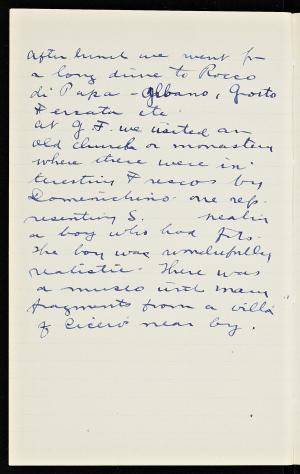 After lunch we went for
a long drive to Rocco
di Papa - Albano, Grotto
Ferrata etc.
At G.F. we visited an
old church or monastery
where there were in-
teresting Frescos by
Domenichino - one rep-
resenting S. healing
a boy who had fits.
The boy was wonderfully
realistic. There was
a museo with many
fragments from a villa
of Cicero near by.